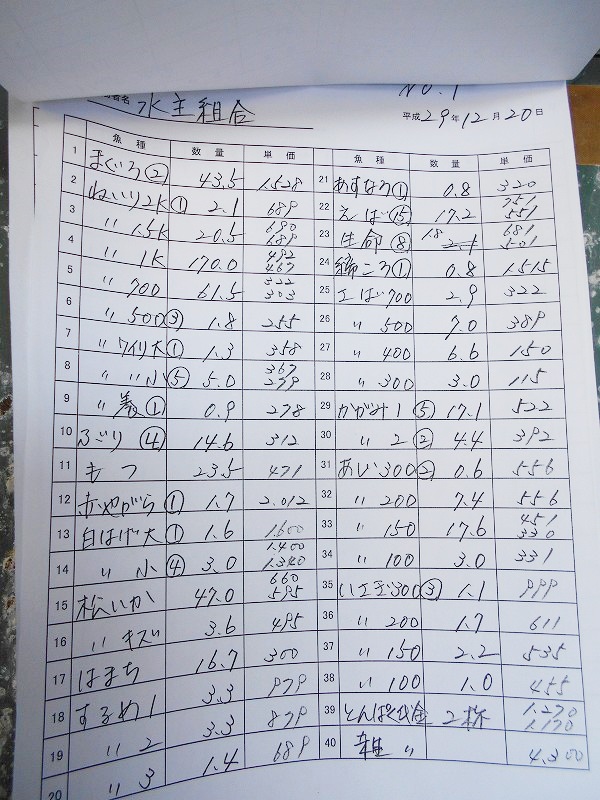 者名 水主組合
No.1
平成29年12月20日
魚種 数量 単価
1 まぐろ② 43.5 1.528
2 ねいり2K① 2.1 689
3 〃 1.5K 20.5 690 689
4 〃 1K 170.0 492 467
5 〃 700 61.5 322 303
6 〃 500③ 1.8 255
7 〃 ワイリ大① 1.3 358
8 〃 〃 小⑤ 5.0 367 279
9 〃 ① 0.9 278
10 ふごり④ 14.6 312
11 もつ 23.5 471
12 赤やがら① 1.7 2.012
13 白はげ大① 1.6 1.600
14 〃 小④ 3.0 1.400 1.340
15 松いか 47.0 660 595
16 〃 キズ 3.6 495
17 はまち 16.7 300
18 するめ1 3.3 979
19 〃 2 3.3 879
20 〃 3 1.4 689
魚種 数量 単価
21 あすなろ① 0.8 320
22 えば⑮ 17.2 751 551
23 生命⑧ 1.8 2.1 681 501
24 締ころ① 0.8 1.515
25 エば700 2.9 322
26 〃 500 7.0 389
27 〃 400 6.6 150
28 〃 300 3.0 115
29 かがみ1⑤ 17.1 522
30 〃 2② 4.4 392
31 あじ300② 0.6 556
32 〃 200 7.4 556
33 〃 150 17.6 451 330
34 〃 100 3.0 331
35 いさぎ300③ 1.1 999
36 〃 200 1.7 611
37 〃 150 2.2 535
38 〃 100 1.0 455
39 とんぼ代金 2杯 1.270 1.170
40 〃 4.300